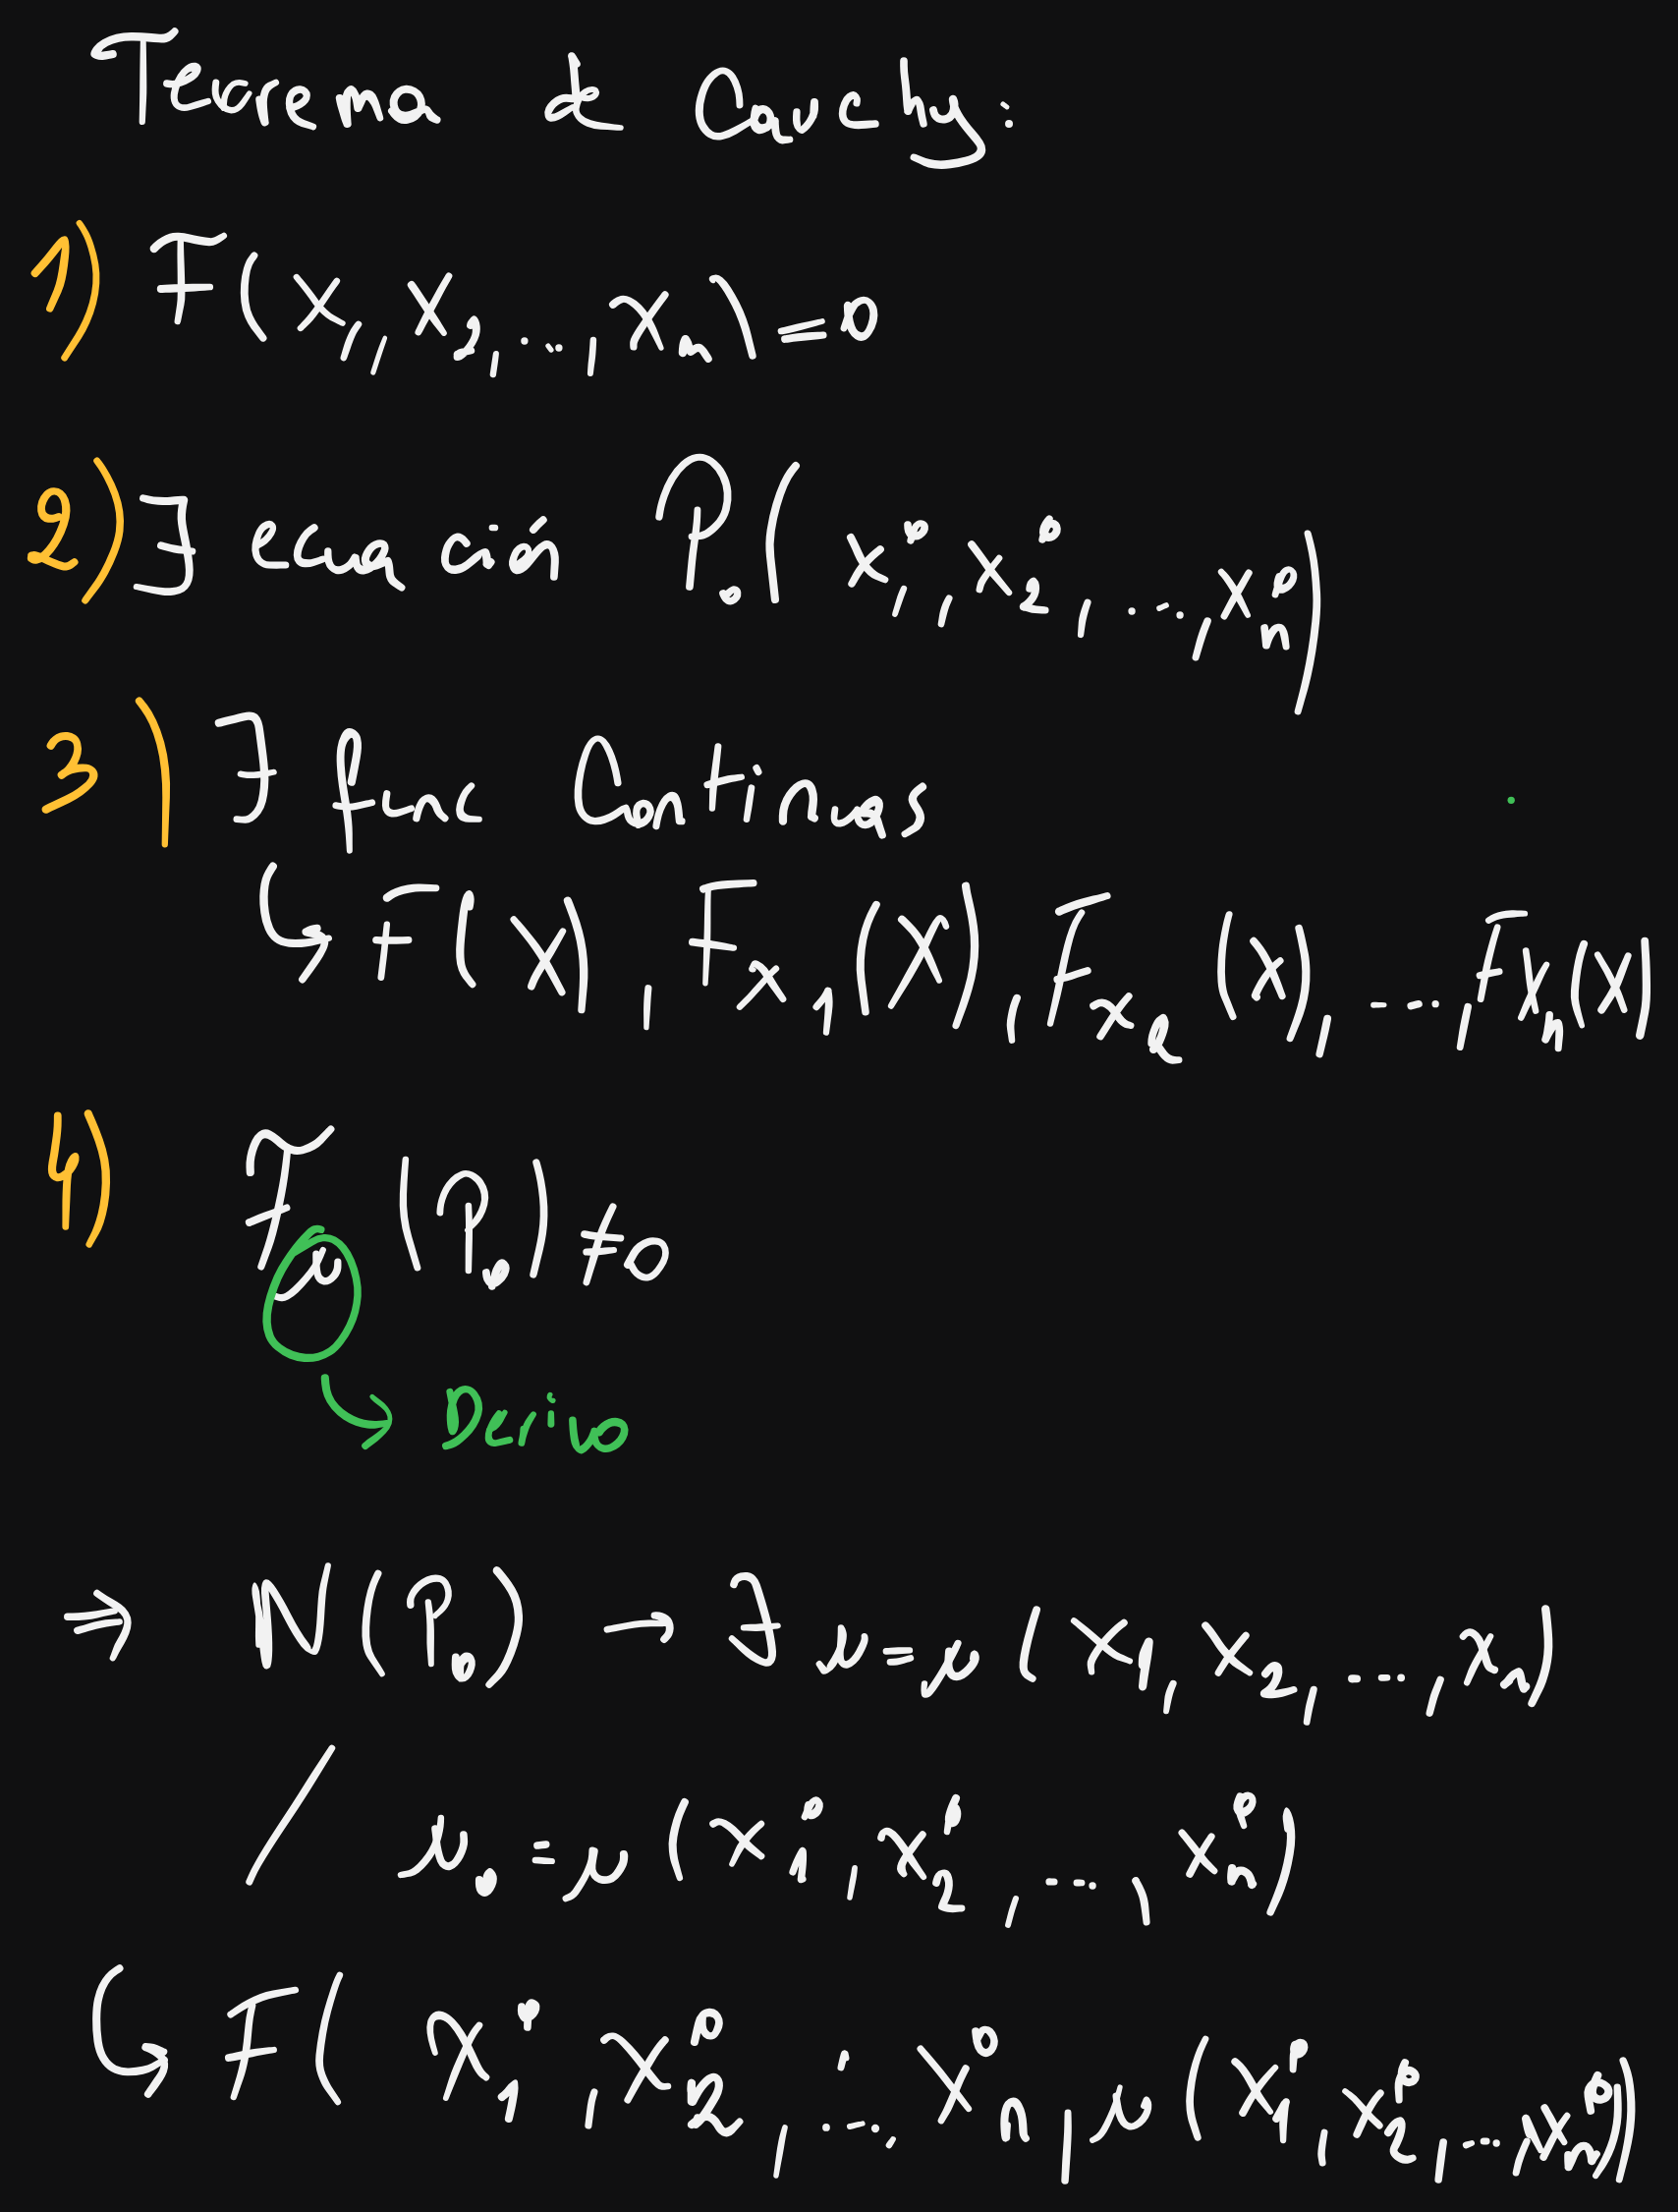 Teorema de Cauchy:
1) F(x₁, x₂, ..., xₙ) = 0
2) ∃ ecuación P₀(x₁°, x₂°, ..., xₙ°)
3) ∃ func Continuas
↳ F(X), Fx₁(X), Fx₂(X), ..., Fxₙ(X)
4) Fμ(P₀) ≠ 0
↳ Derivo
⇒ N(P₀) → ∃ μ = μ(x₁, x₂, ..., xₙ)
/ μ₀ = μ(x₁°, x₂°, ..., xₙ°)
↳ F(x₁°, x₂°, ..., xₙ°, μ(x₁°, x₂°, ..., xₙ°))